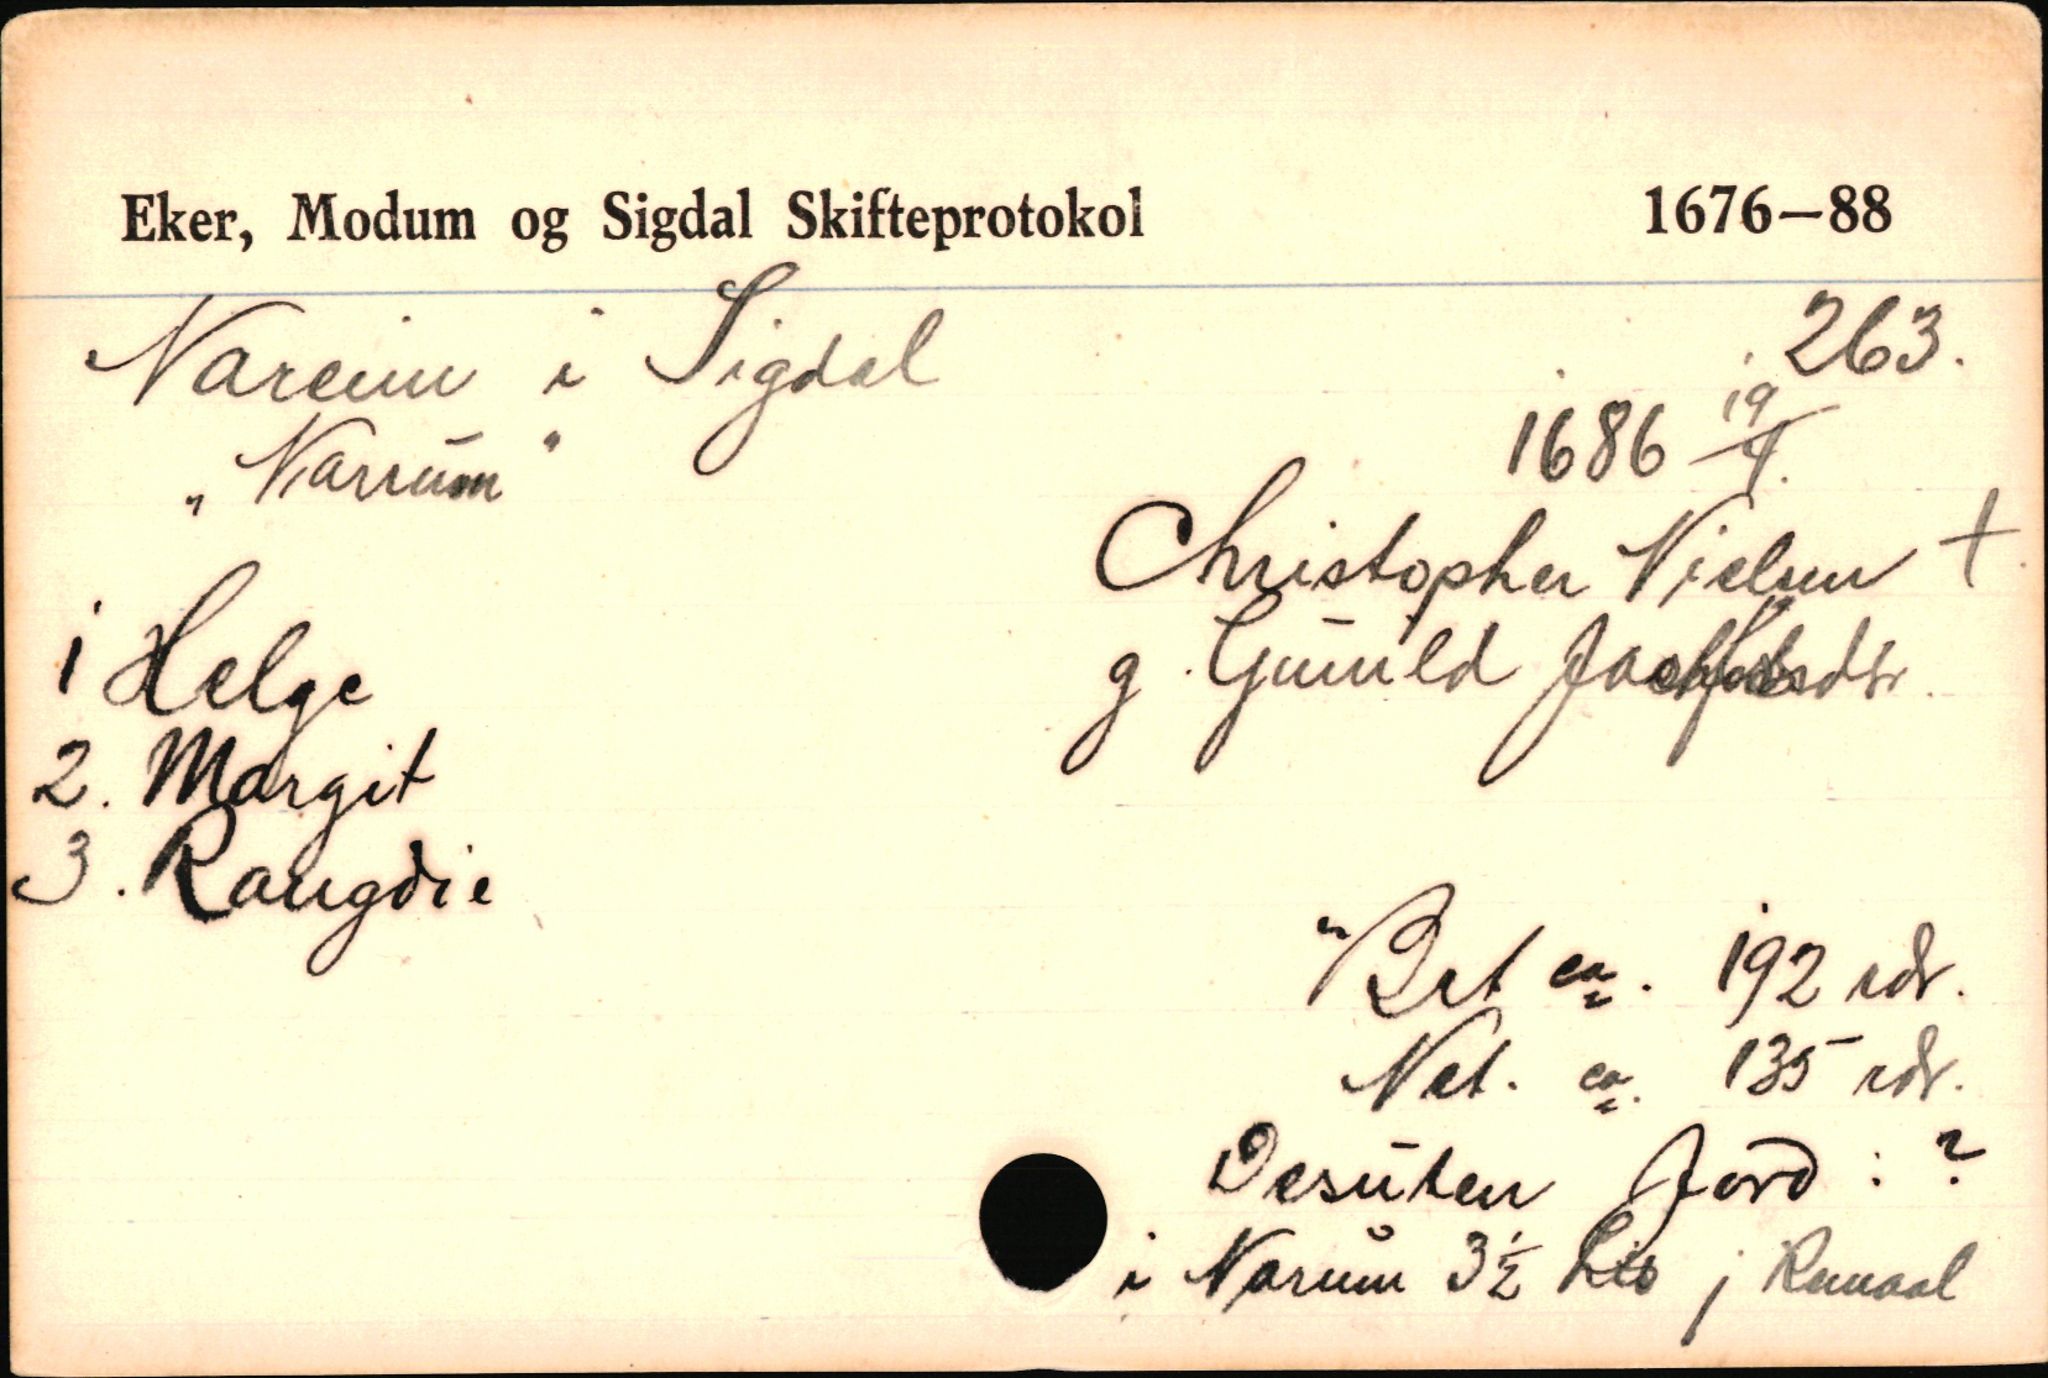 Eker, Modum og Sigdal Skifteprotokol 1676—88
Nareim i Sigdal
263.
"Narrum"
1686 19/4.
Christopher Nielsen +
g. Gunild
1 Helge
2. Margit
3. Rangdie
Brt ca. 192 rdr.
Net. ca. 135 rdr.
Desuten Jord: ?
i Narum 3½ Lis j